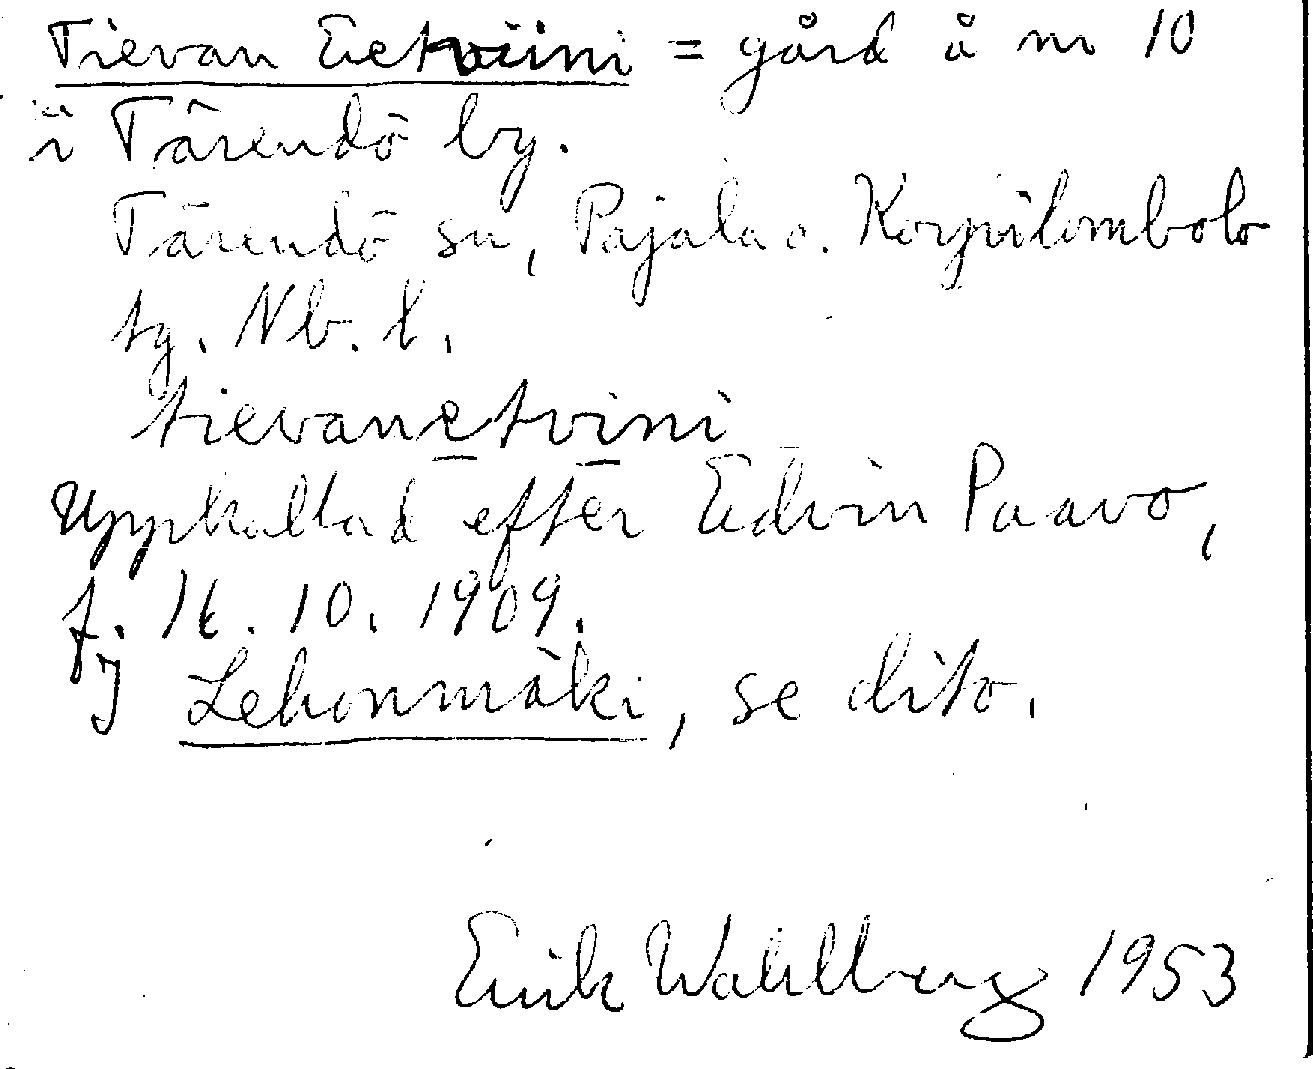 Tievan Eetviini = gård å nr 10
i Tärendö by.
Tärendö sn, Pajala o. Korpilombolo
tg. Nb. l.
tievanetvini
Uppkallad efter Edvin Paavo,
f. 16. 10. 1909.
J Lehonmäki, se dito.
Erik Wahlberg 1953